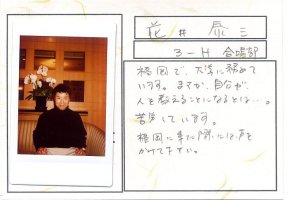 花井 辰三
3-H 合唱部
福岡で、大学に務めて
います。まさか、自分が、
人を教えることになるとは…。
苦労しています。
福岡に来た際には、声を
かけて下さい。